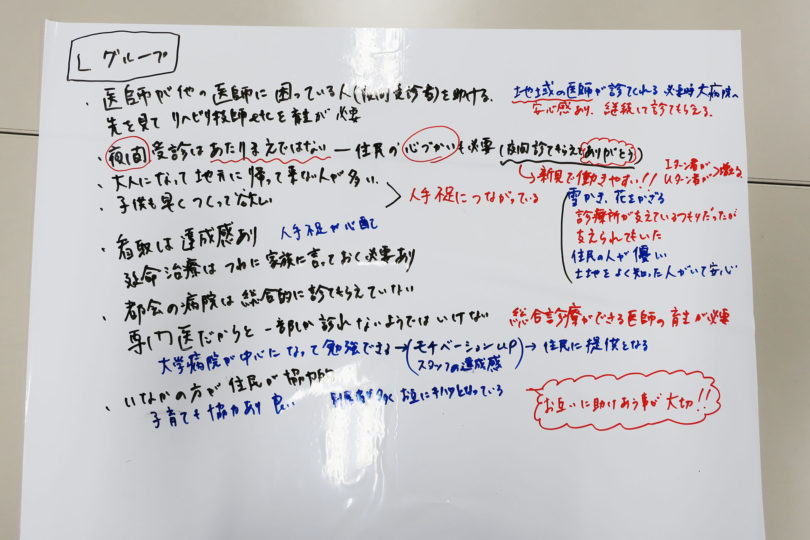 L グループ
・医師が他の医師に困っている人(夜間受診者)を助ける。
地域の医師が診てくれる 必要時大病院へ
安心感あり、継続して診てもらえる。
先を見て リハビリ技師etcを育立が必要
・夜間受診はあたりまえではない ― 住民の心づかいも必要(夜間診てもらえてありがとう)
→新見で働きやすい!!
Iターン者が
Uターン者が 増える
・大人になって地方に帰って来ない人が多い。
・子供も早くつくって欲しい
人手不足につながっている
雪かき、花をかざる
診療所が支えているつもりだったが
支えられてもいた
住民の人が優しい
土地をよく知った人がいて安心
・看取は達成感あり 人手不足が心配で
延命治療はつねに家族に言っておく必要あり
・都会の病院は総合的に診てもらえていない
専門医だからと一部しか診れないようではいけない
総合診療ができる医師の育立が必要
大学病院が中心になって勉強できる→(モチベーションup スタッフの達成感)→住民に提供となる
・いなかの方が住民が協力的
子育ても協力あり 良い
お互にキハクとなっている
お互いに助けあう事が大切!!